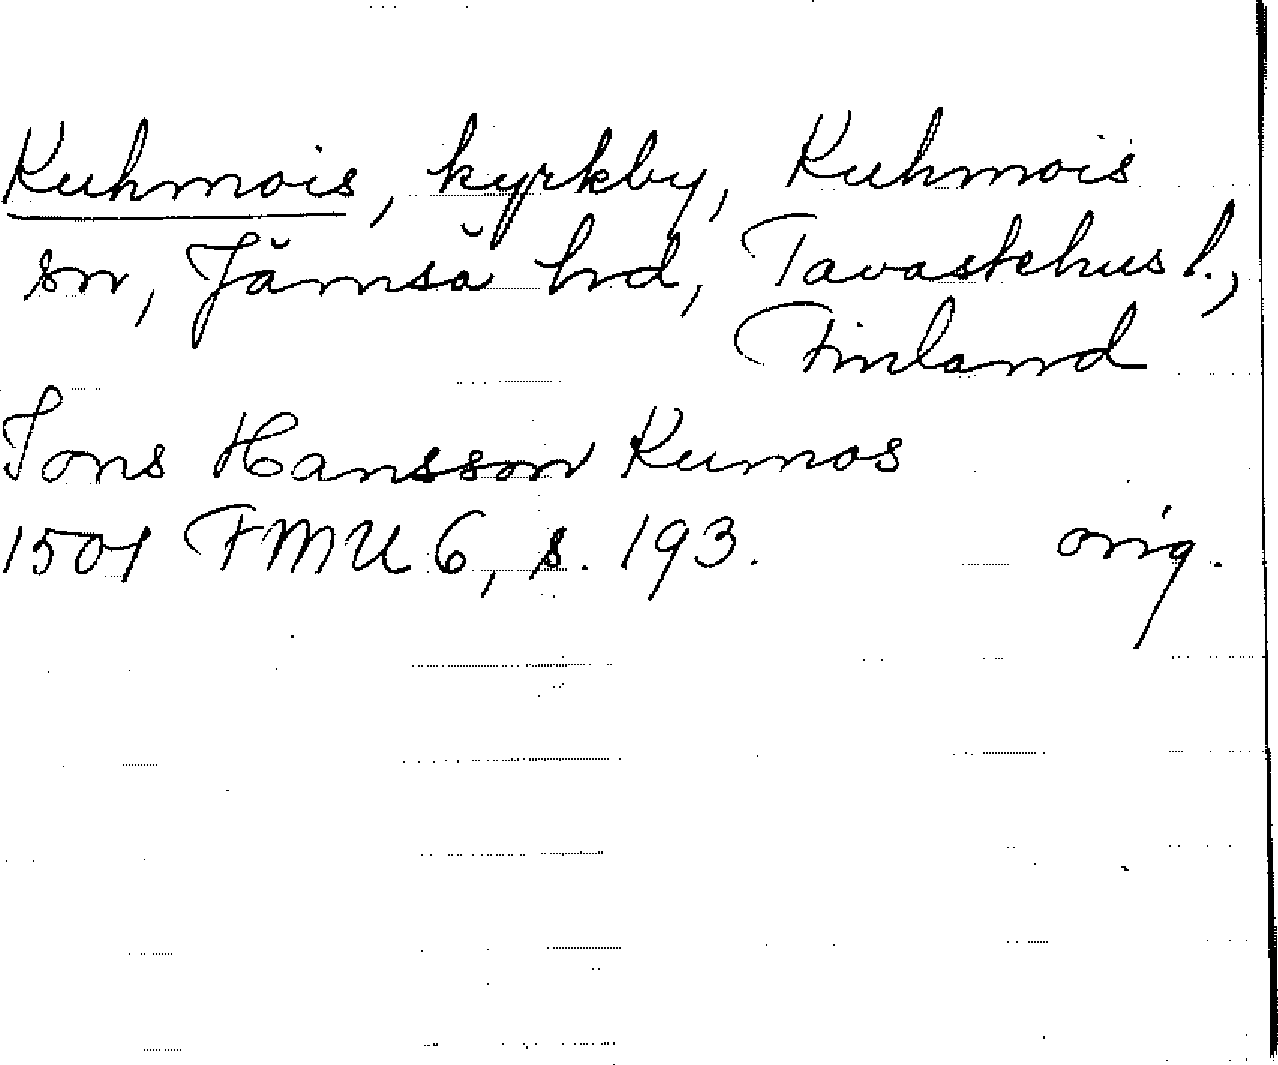 Kuhmois, kyrkby, Kuhmois
sn, Jämsä hd, Tavastehus l.,
Finland
Jons Hansson Kumos
1507 FMU 6, s. 193. orig.